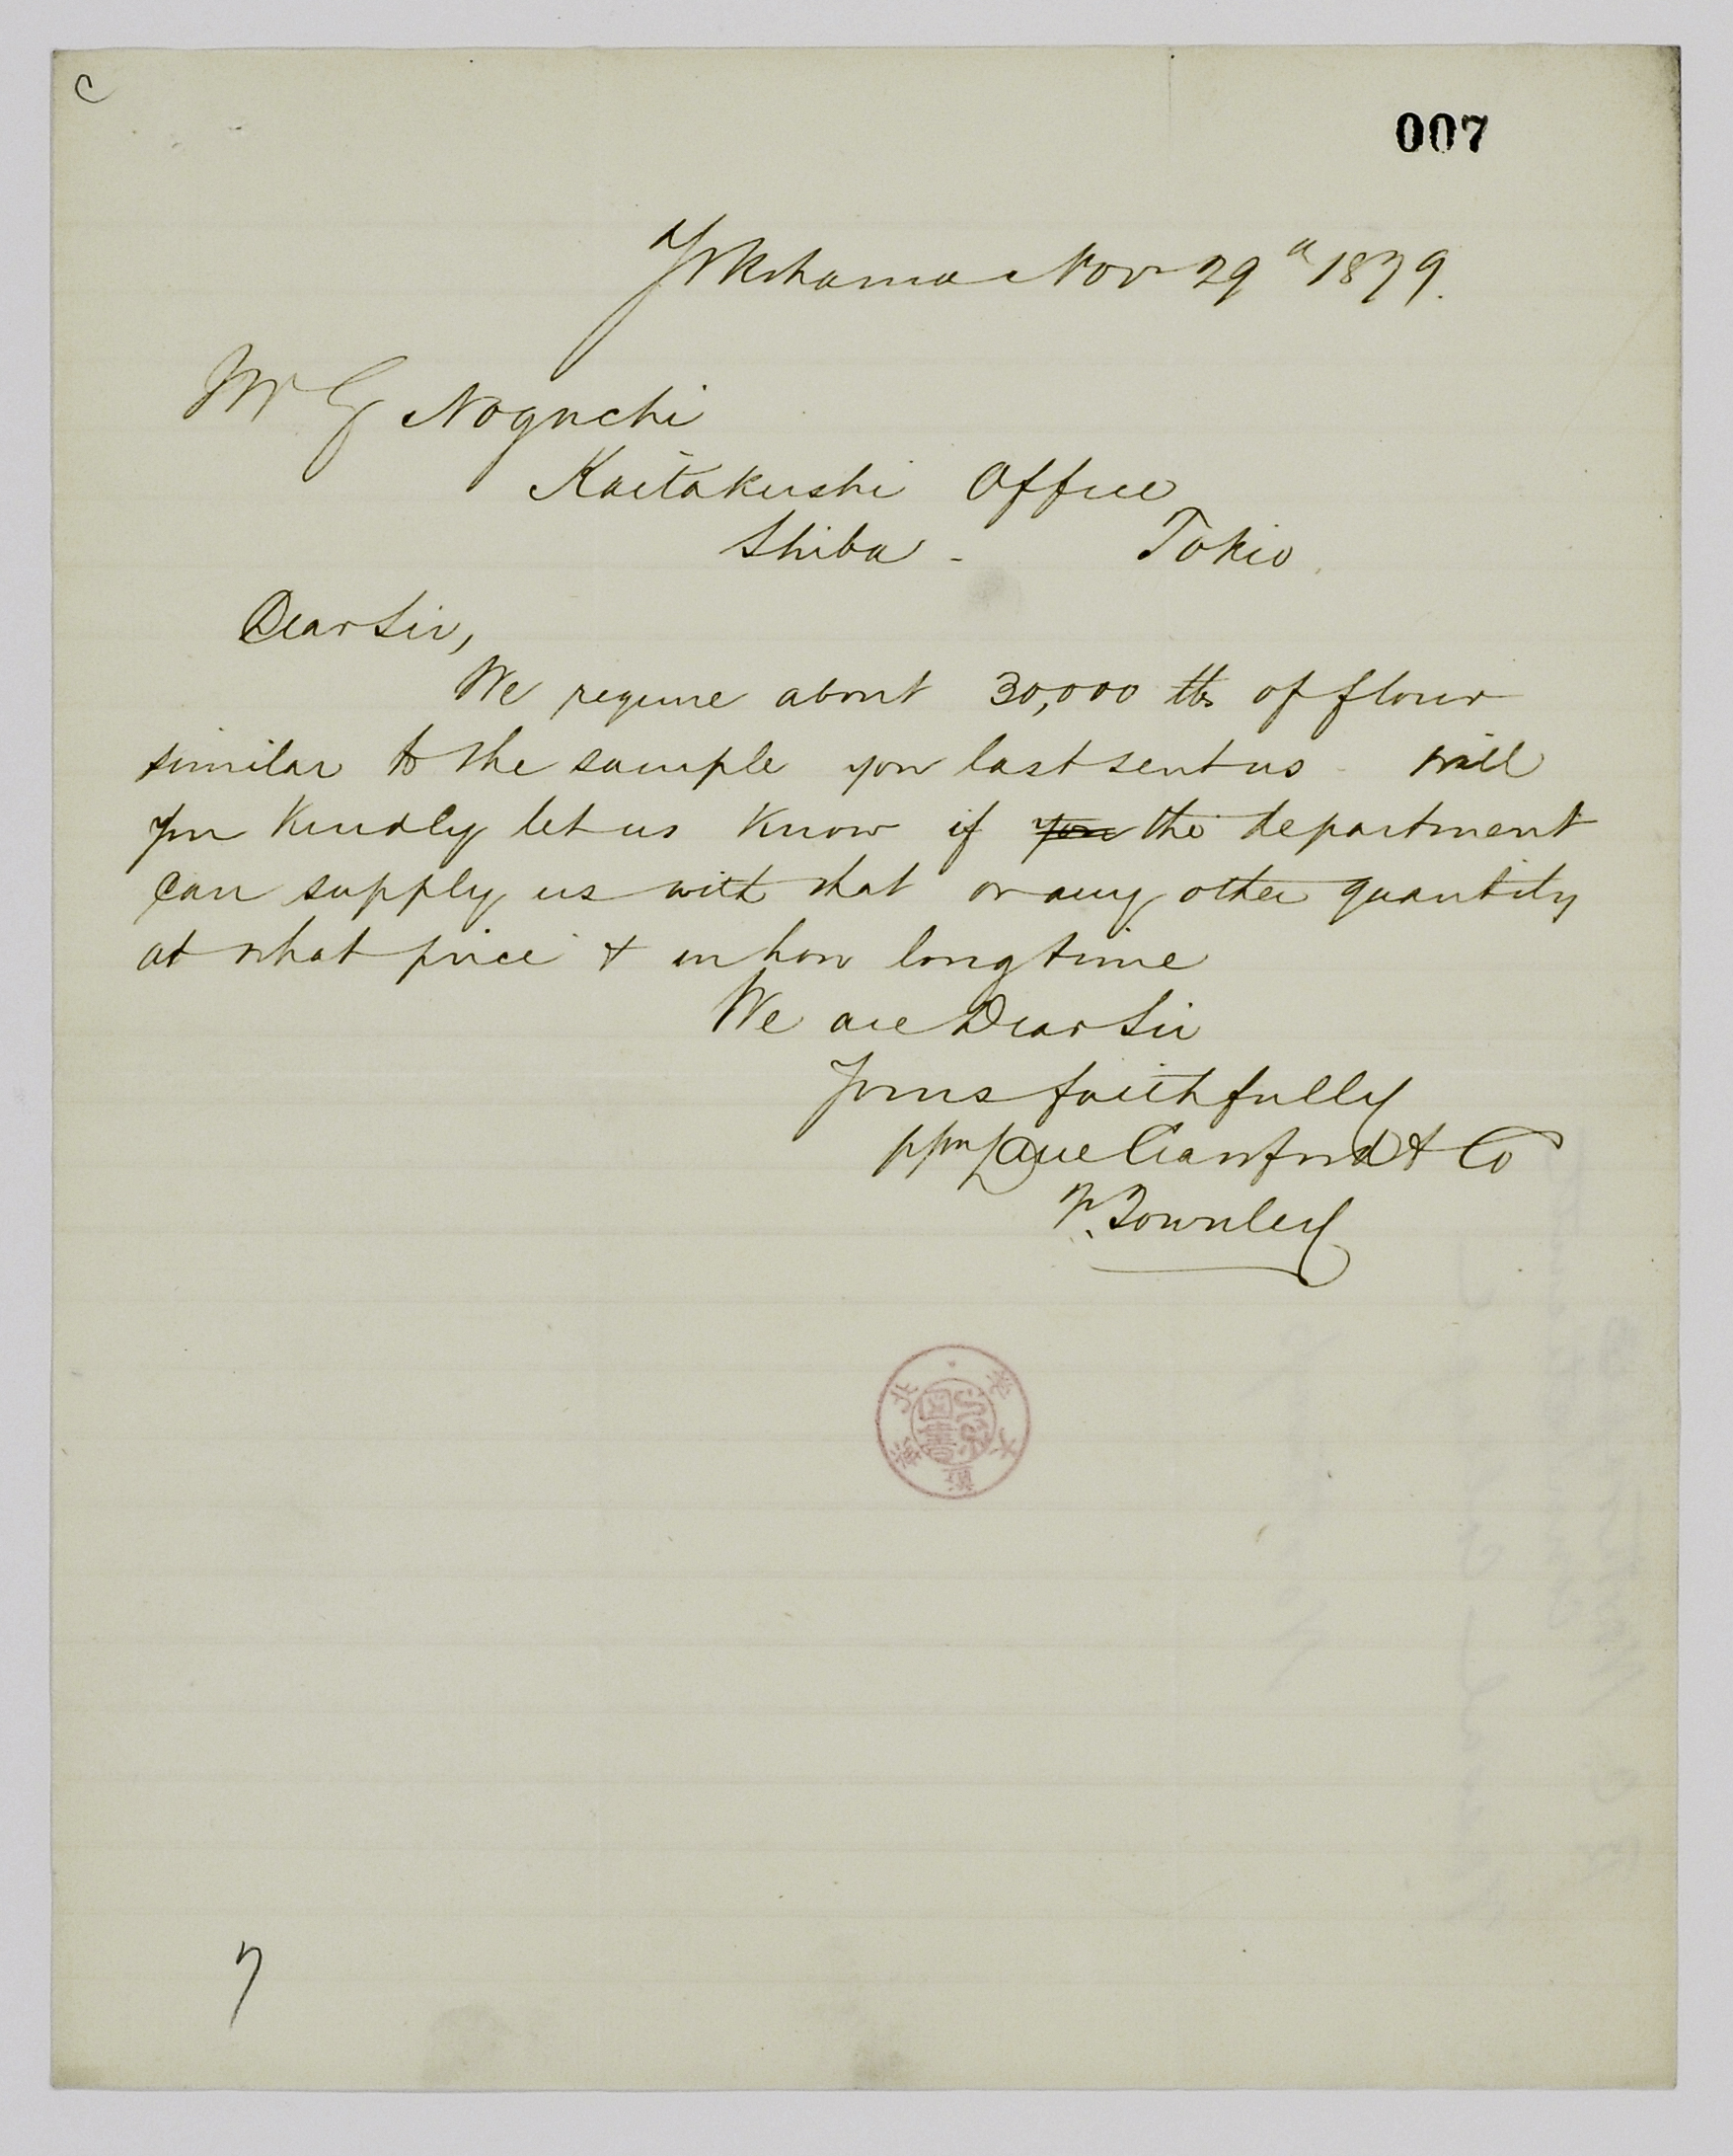 C
007
Yokohama Nov 29th 1879.
Mr G Noguchi
Kaitakushi Office
Shiba - Tokio
Dear Sir,
We require about 30,000 lbs of flour
similar to the sample you last sent us - Will
you kindly let us know if you the department
can supply us with that or any other quantity
at what price & in how long time
We are Dear Sir
Yours faithfully
ppro Lane Crawford & Co
F. Townley
北海道大學
圖書
7